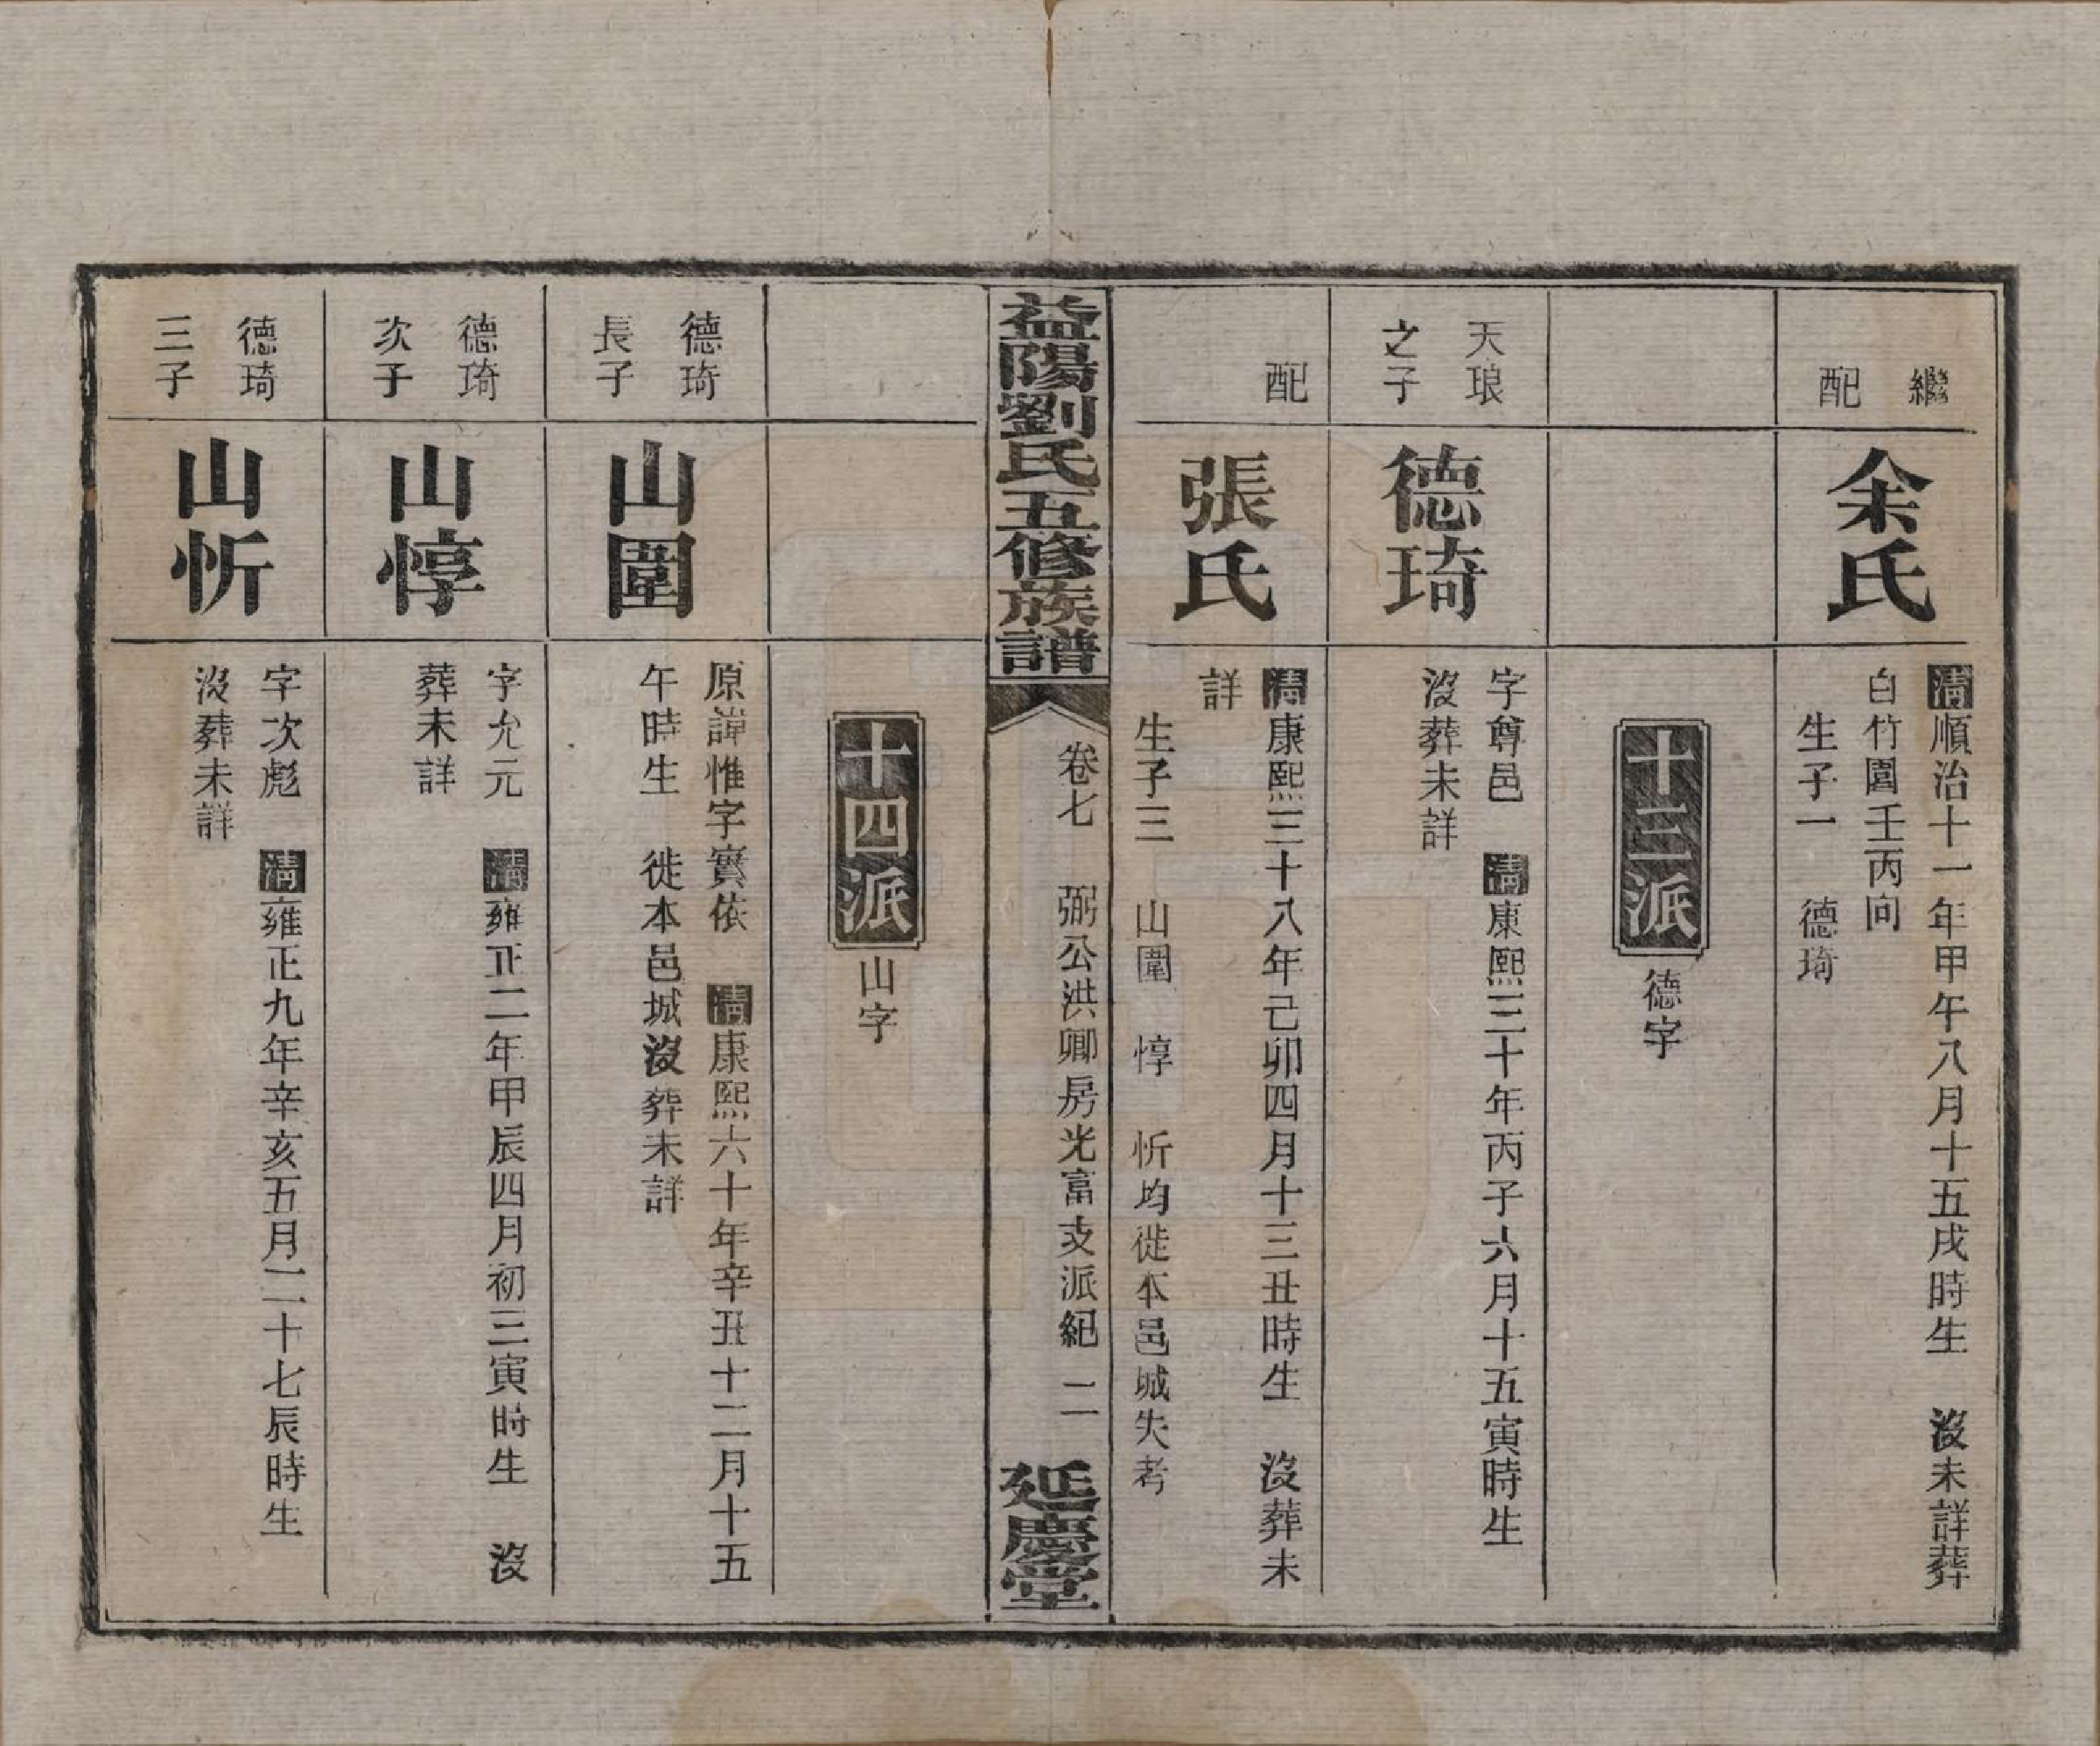 繼
配
余氏
清順治十一年甲午八月十五戌時生　沒未詳葬
白竹園壬丙向
生子一　德琦
十三派
德字
天琅
之子
德琦
字尊邑　清康熙三十年丙子六月十五寅時生
沒葬未詳
配
張氏
清康熙三十八年己卯四月十三丑時生　沒葬未
詳
生子三　山圍　惇　忻均徙本邑城失考
益陽劉氏五修族譜
卷七　弼公洪卿房光富支派紀　二
延慶堂
十四派
山字
德琦
長子
山圍
原諱惟字賓依　清康熙六十年辛丑十二月十五
午時生　徙本邑城沒葬未詳
德琦
次子
山惇
字允元　清雍正二年甲辰四月初三寅時生　沒
葬未詳
德琦
三子
山忻
字次彪　清雍正九年辛亥五月二十七辰時生
沒葬未詳